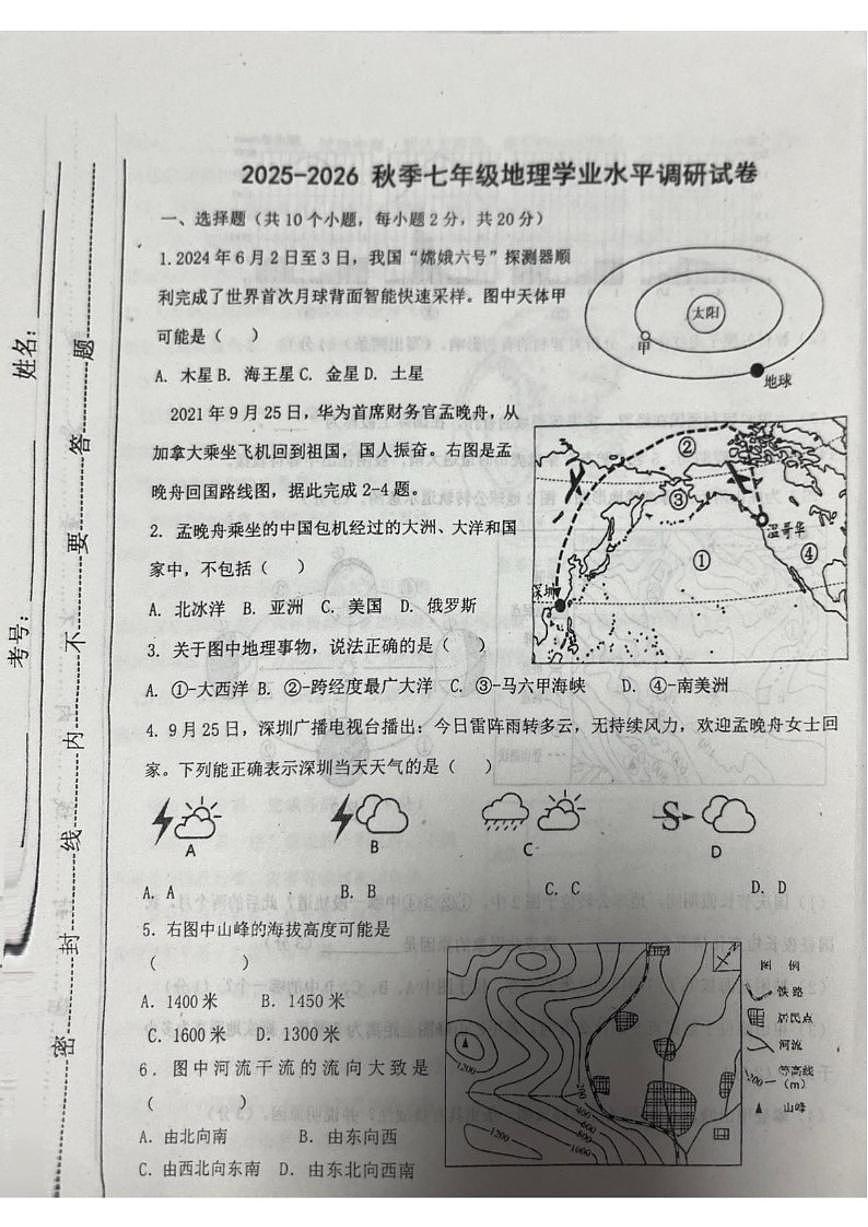 2025-2026 秋季七年级地理学业水平调研试卷
一、选择题(共 10 个小题,每小题 2 分,共 20 分)
1.2024 年 6 月 2 日至 3 日,我国“嫦娥六号”探测器顺
利完成了世界首次月球背面智能快速采样。图中天体甲
可能是( )
A. 木星 B. 海王星 C. 金星 D. 土星
太阳
甲
地球
2021 年 9 月 25 日,华为首席财务官孟晚舟,从
加拿大乘坐飞机回到祖国,国人振奋。右图是孟
晚舟回国路线图,据此完成 2-4 题。
2. 孟晚舟乘坐的中国包机经过的大洲、大洋和国
家中,不包括( )
A. 北冰洋 B. 亚洲 C. 美国 D. 俄罗斯
②
③
温哥华
①
④
深圳
3. 关于图中地理事物,说法正确的是( )
A. ①-大西洋 B. ②-跨经度最广大洋 C. ③-马六甲海峡 D. ④-南美洲
4. 9 月 25 日,深圳广播电视台播出:今日雷阵雨转多云,无持续风力,欢迎孟晚舟女士回
家。下列能正确表示深圳当天天气的是( )
A B C D
A. A B. B C. C D. D
5. 右图中山峰的海拔高度可能是
( )
A. 1400 米 B. 1450 米
C. 1600 米 D. 1300 米
6. 图中河流干流的流向大致是
( )
A. 由北向南 B. 由东向西
C. 由西北向东南 D. 由东北向西南
图例
铁路
居民点
河流
200 等高线
(m)
山峰
1200
200
400
600
800
1000
1200
姓名:
考号:
密 封 线 内 不 要 答 题